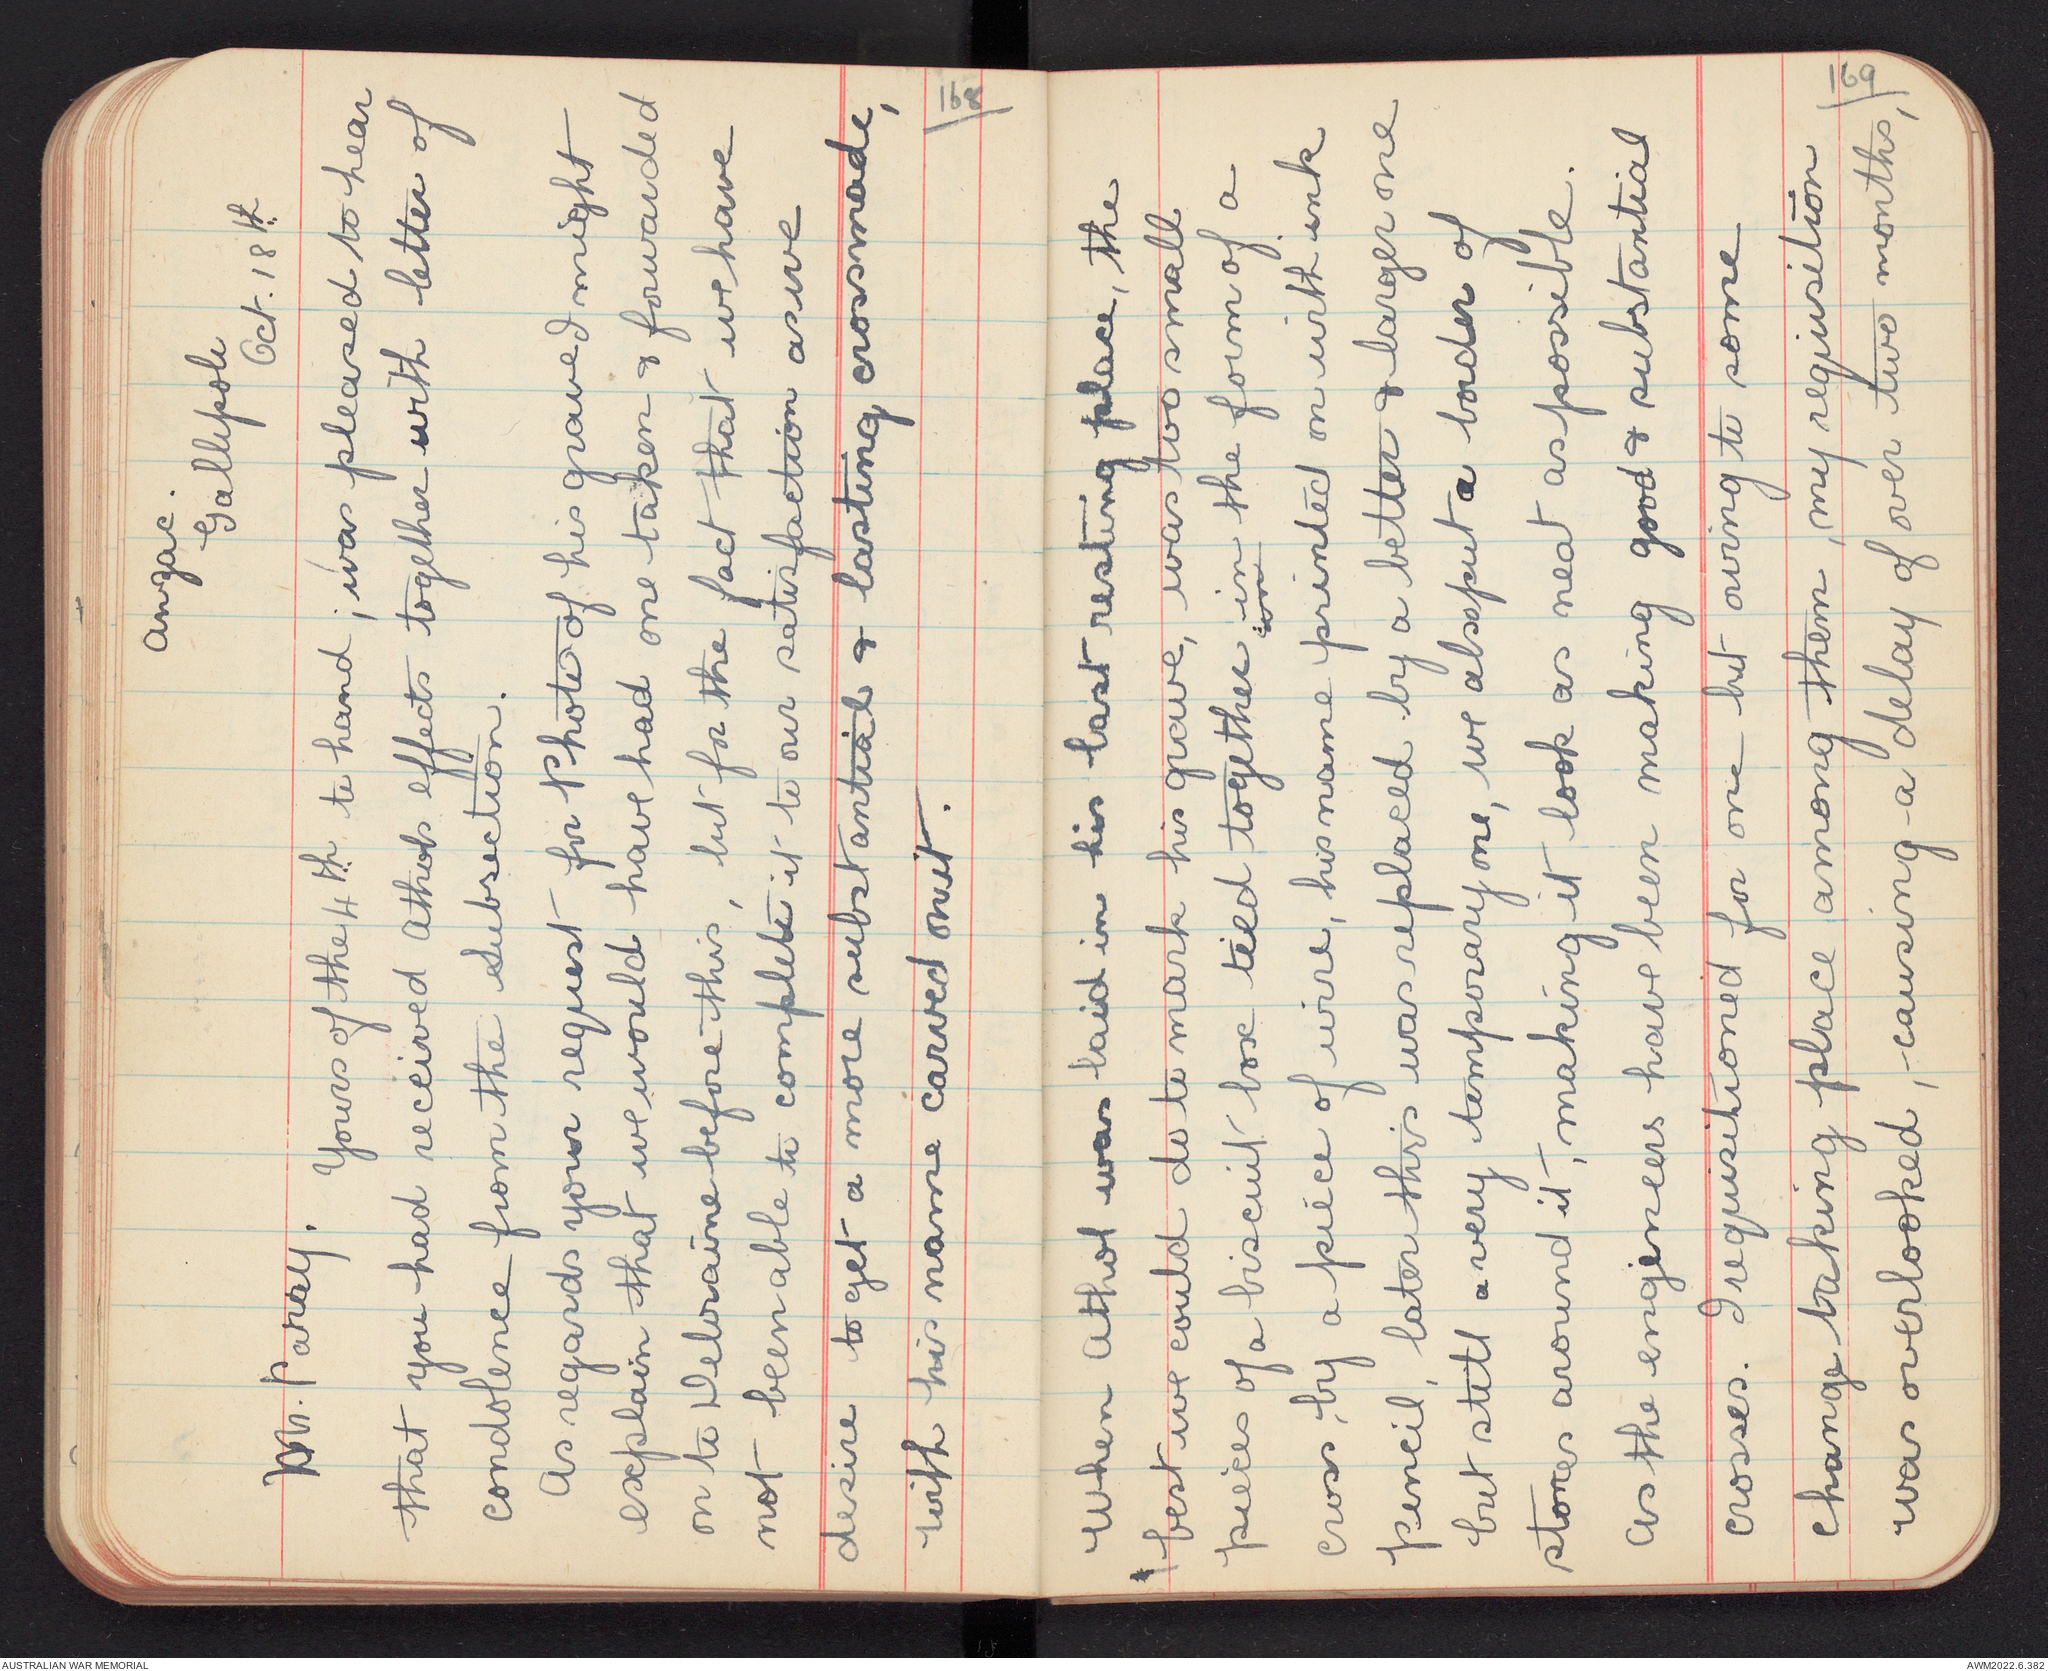 Anzac.
Gallipoli
Oct. 18th
Mr. Paray.
Yours of the 4th to hand; was pleased to hear
that you had received Athols effects together with letter of
condolence from the Subsection.
As regards your request for Photo of his grave I might
explain that we would have had one taken & forwarded
on to Deloraine before this, but for the fact that we have
not been able to complete it to our satisfaction as we
desire to get a more substantial & lasting cross made,
with his name carved on it.
168
When Athol was laid in his last resting place, the
best we could do to mark his grave, was two small
pieces of a biscuit box tied together in the form of a
cross, by a piece of wire, his name printed on with ink
pencil, later this was replaced by a better & larger one
but still a very temporary one, we also put a border of
stones around it, making it look as neat as possible.
As the engineers have been making good & substantial
crosses. I requisitioned for one but owing to some
change taking place among them, my requisition
was overlooked, causing a delay of over two months,
169
AUSTRALIAN WAR MEMORIAL
AWM2022.6.382